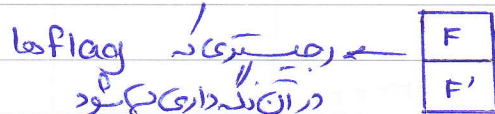 F ← رجیستری که flag ها
F' در آن نگه داری می شود